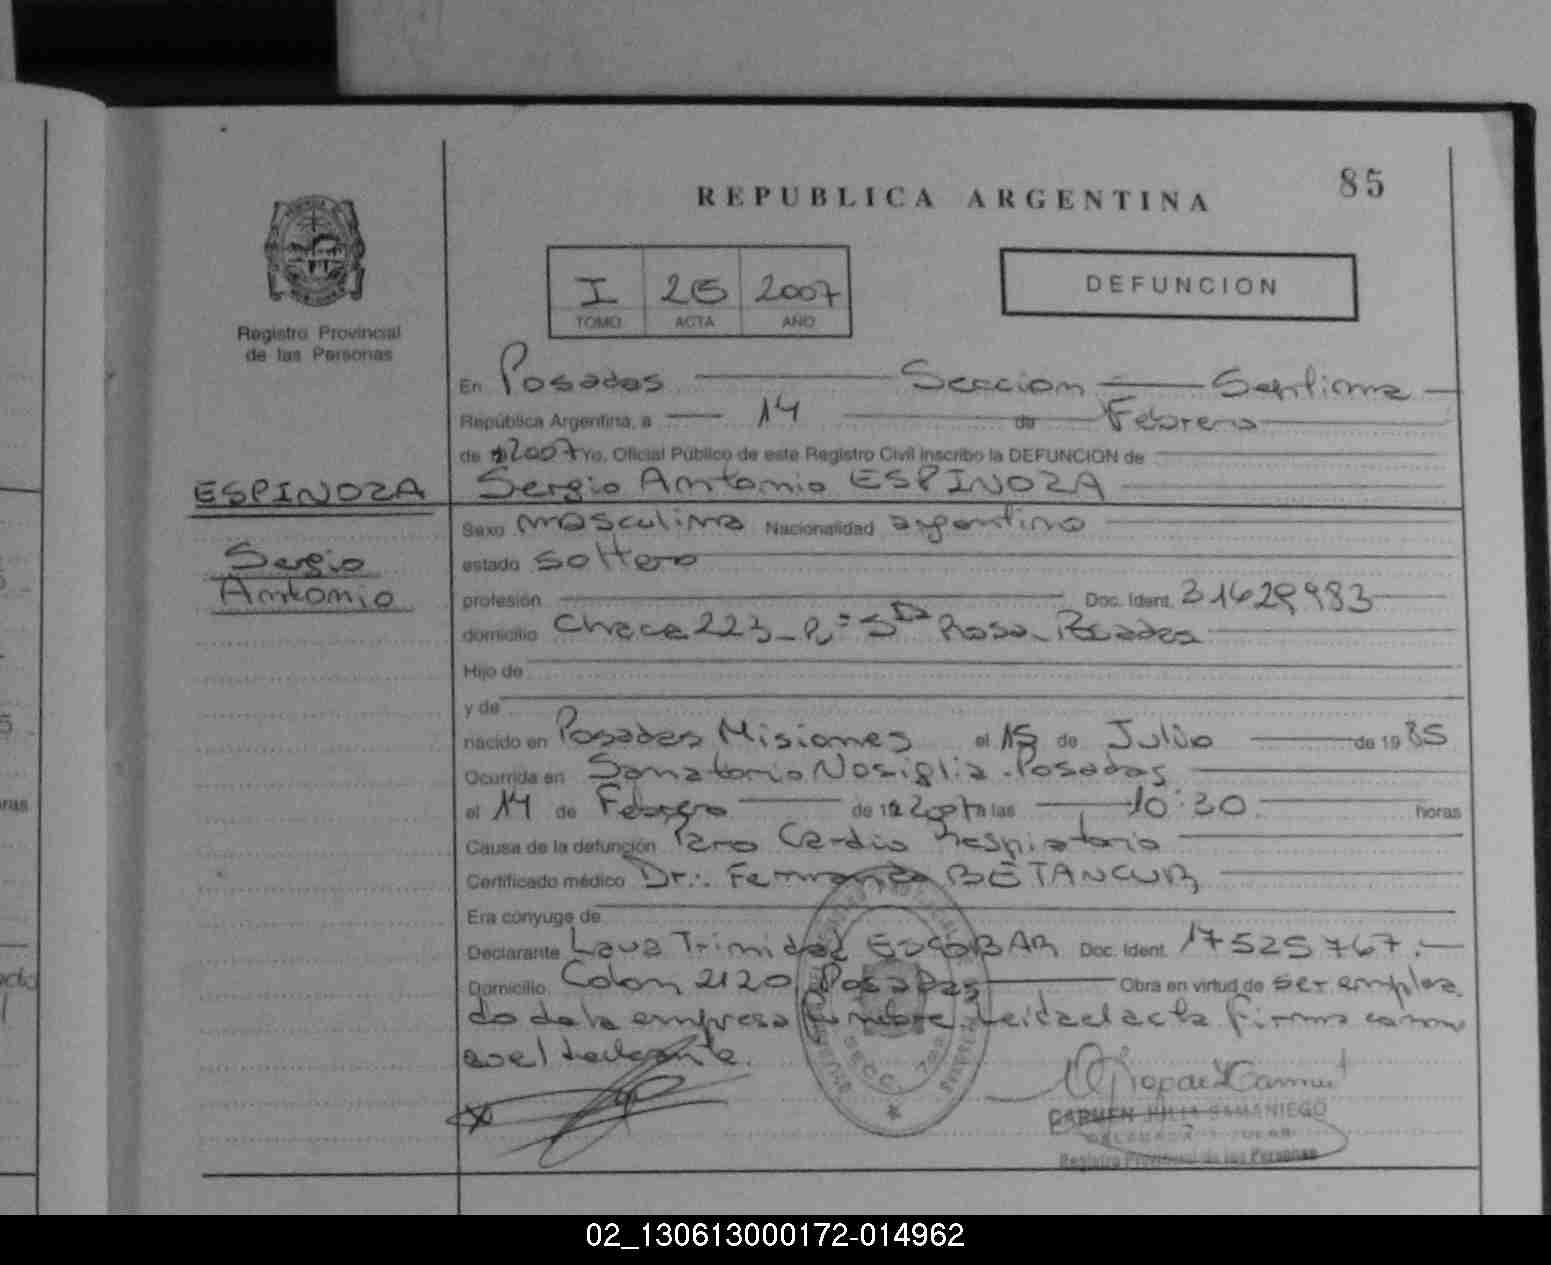 85
REPUBLICA ARGENTINA
I 26 2007
TOMO ACTA AÑO
DEFUNCION
Registro Provincial
de las Personas
En Posadas Seccion Septima
República Argentina, a 14 de Febrero
de 2007 Yo, Oficial Público de este Registro Civil inscribo la DEFUNCION de
ESPINOZA Sergio Antonio ESPINOZA
Sexo masculino Nacionalidad argentino
Sergio
estado soltero
Antonio
profesión Doc. Ident. 31429983
domicilio Chacra 223 - Bº Sta Rosa - Posadas
Hijo de
y de
nacido en Posadas Misiones el 15 de Julio de 1985
Ocurrida en Sanatorio Nosiglia - Posadas
el 14 de Febrero de 2007 a las 10:30 horas
Causa de la defunción Paro Cardio Respiratorio
Certificado médico Dr. Fernando BETANCUR
Era cónyuge de
Declarante Laua Trinidad ESCOBAR Doc. Ident. 17525767.
Domicilio Colon 2120 Posadas Obra en virtud de ser emplea
do de la empresa funebre Leida el acta firma
CARMEN JULIA SAMANIEGO
Registro Provincial de las Personas
02_130613000172-014962